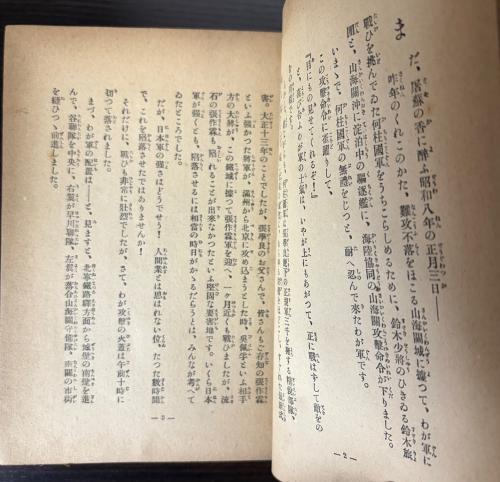 まだ、屠蘇の香に醉ふ昭和八年の正月三日——
昨年のくれこのかた、難攻不落をほこる山海關城に據つて、わが軍に
戰ひを挑んでゐた何柱國軍をうちこらしめるために、鈴木少將のひきゐる鈴木旅
團と、山海關沖に淀泊中の驅逐艦に、海陸協同の山海關攻擊命令が下りました。
いまゝで、何柱國軍の無禮をじつと、耐へ忍んで來たわが軍です。
この攻擊命令に雀躍りして、
『目にもの見せてくれるぞ！』
と、喜び合ふわが軍の士氣は、いやが上にもあがつて、正に戰はずして敵をの
—2—
害。大正十三年のことでしたが、張學良のお父さんで、皆さんもご存知の張作霖
といふ強かつた將軍が、滿州から北京に攻め込まうとした時、吳佩孚といふ相手
方の大將が、この關城に據つて張作霖軍を迎へ、一ケ月近くも戰ひましたが、流
石の張作霖も、陷れることが出來なかつたといふ堅固な要害地です。いくら日本
軍が強くとも、陷落させるには相當の時日がかゝるだらうとは、みんなが考へて
ゐたところでした。
だが、日本軍の強さはどうでせう！　人間業とは思はれない位、たつた數時間
で、これを陷落させたではありませんか！
それだけに、戰ひも非常に壯烈でしたが、さて、わが攻擊の火蓋は午前十時に
切つて落されました。
まづ、わが軍の配置は——と、見ますと、北寧鐵路驛方面から城壁の南壁を進
んで、谷聯隊を中央に、右翼が早川聯隊、左翼が落合山海關守備隊、南關の市街
を縫ひつゝ前進しました。
—3—